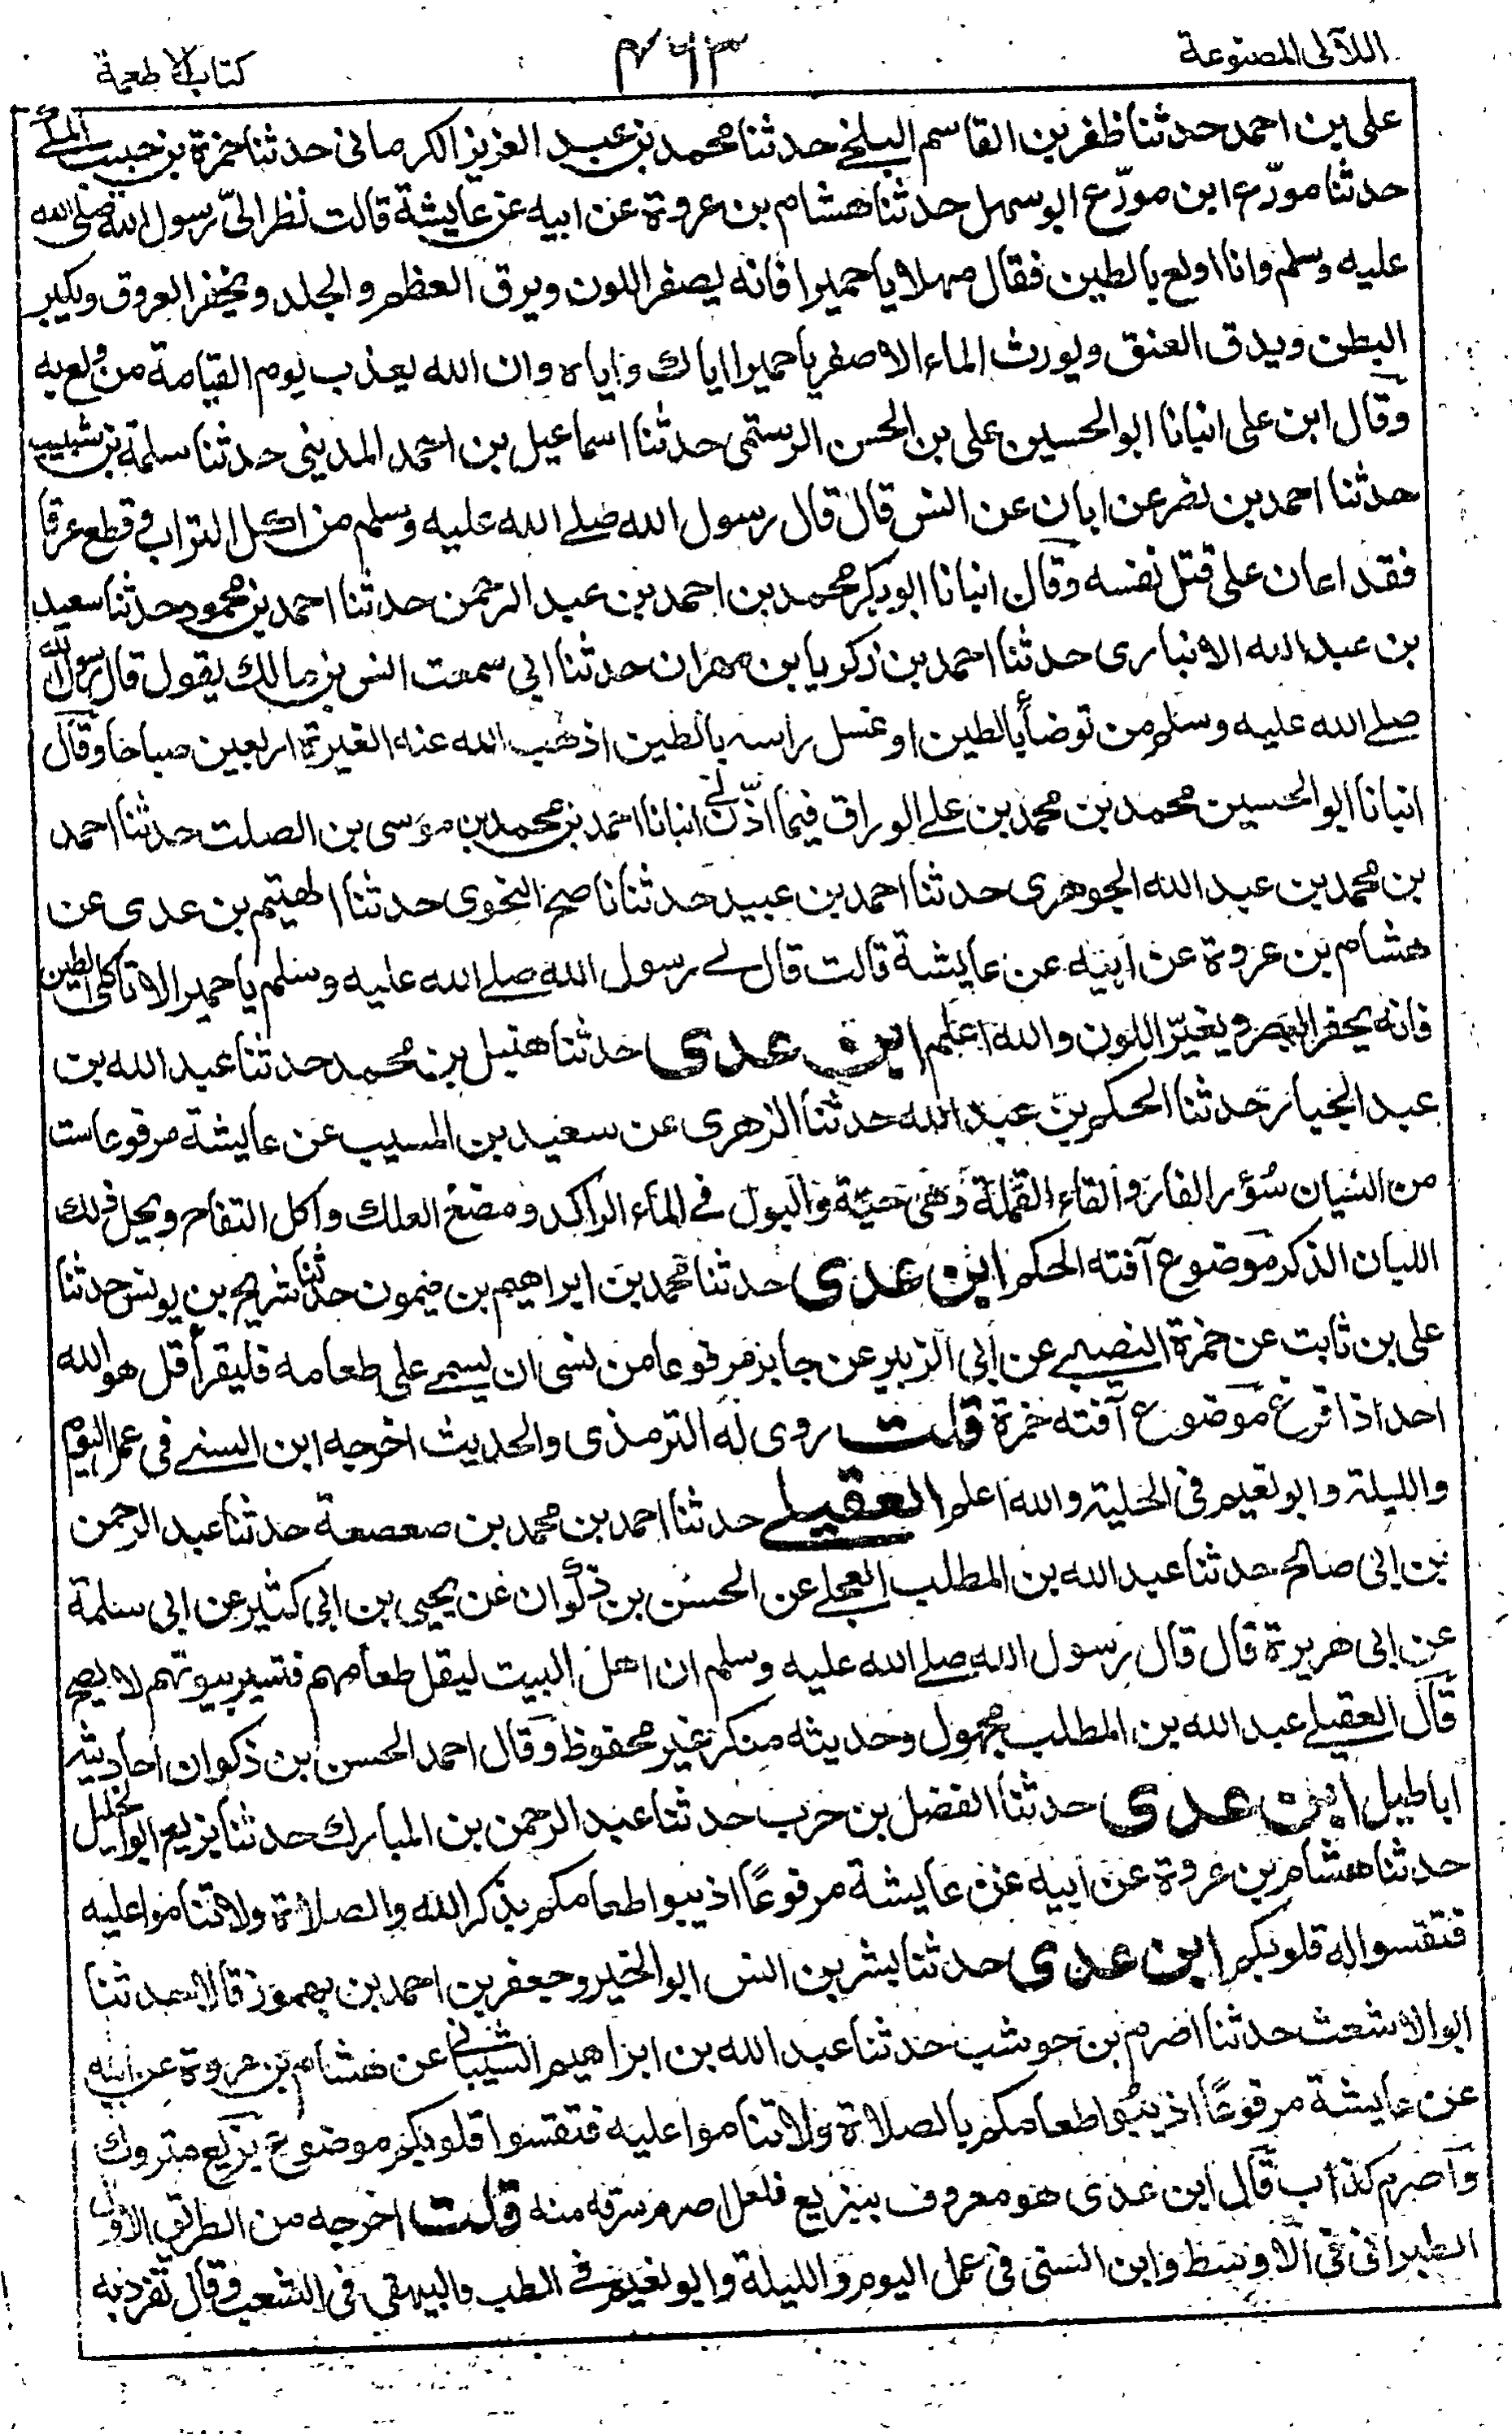 اللآلى المصنوعة
٤٦٣
كتاب الاطعمة
على بن احمد حدثنا ظفر بن القاسم البلخے حدثنا محمد بن عبد العزيز الكرمانى حدثنا حمزة بن حبيب المكے
حدثنا مودّع ابن مودّع ابو سهل حدثنا هشام بن عروة عن ابيه عن عايشة قالت نظر الىّ رسول الله صلى الله
عليه وسلم وانا اولع بالطين فقال مهلا يا حميرا فانه ليصفر اللون ويرق العظم والجلد ويخفر العروق ويكبر
البطن ويدق العنق ويورث الماء الاصفر يا حميرا اياك واياه وان الله يعذب يوم القيامة من ولع به
وقال ابن على انبانا ابو الحسين على بن الحسن الرستمى حدثنا اسماعيل بن احمد المدينى حدثنا سلمة بن شبيب
حدثنا احمد بن نصر عن ابان عن انس قال قال رسول الله صلے الله عليه وسلم من اكل التراب وقطع عرقا
فقد اعان على قتل نفسه وقال انبانا ابو بكر محمد بن احمد بن عبد الرحمن حدثنا احمد بن محمود حدثنا سعيد
بن عبد الله الانبارى حدثنا احمد بن زكريا بن مهران حدثنا ابى سمعت انس بن مالك يقول قال رسول الله
صلے الله عليه وسلم من توضأ بالطين او غسل راسه بالطين اذهب الله عنه الغيرة اربعين صباحا وقال
انبانا ابو الحسين محمد بن محمد بن علے الوراق فيما اذّن لے انبانا احمد بن محمد بن موسى بن الصلت حدثنا احمد
بن محمد بن عبد الله الجوهرى حدثنا احمد بن عبيد حدثنا ناصح النحوى حدثنا الهيثم بن عدى عن
هشام بن عروة عن ابيه عن عايشة قالت قال لے رسول الله صلے الله عليه وسلم يا حميرا لا تاكلى الطين
فانه يحفر البصر ويغيّر اللون والله اعلم ابن عدى حدثنا هنبل بن محمد حدثنا عبد الله بن
عبد الجبار حدثنا الحكم بن عبد الله حدثنا الزهرى عن سعيد بن المسيب عن عايشة مرفوعا ست
من النسيان سُؤر الفار والقاء القملة وهى حيّة والبول فے الماء الراكد ومضغ العلك واكل التفاح ويحل ذلك
اللبان الذكر موضوع آفته الحكم ابن عدى حدثنا محمد بن ابراهيم بن ميمون حدثنا شريح بن يونس حدثنا
على بن ثابت عن حمزة النصيبے عن ابى الزبير عن جابر مرفوعا من نسى ان يسمے على طعامه فليقرأ قل هو الله
احد اذا فرغ موضوع آفته حمزة قلت روى له الترمذى والحديث اخرجه ابن السنے فى عمل اليوم
والليلة وابو نعيم فى الحلية والله اعلم العقيلے حدثنا احمد بن محمد بن صعصعة حدثنا عبد الرحمن
بن ابى صالح حدثنا عبد الله بن المطلب العجلے عن الحسن بن ذكوان عن يحيى بن ابى كثير عن ابى سلمة
عن ابى هريرة قال قال رسول الله صلے الله عليه وسلم ان اهل البيت ليقل طعامهم فتستير بيوتهم لا يصح
قال العقيلے عبد الله بن المطلب مجهول وحديثه منكر غير محفوظ وقال احمد الحسن بن ذكوان احاديثه
اباطيل ابن عدى حدثنا الفضل بن حرب حدثنا عبد الرحمن بن المبارك حدثنا بزيع ابو الخليل
حدثنا هشام بن عروة عن ابيه عن عايشة مرفوعًا اذيبوا طعامكم بذكر الله والصلاة ولا تناموا عليه
فتقسو له قلوبكم ابن عدى حدثنا بشر بن انس ابو الخير وجعفر بن احمد بن بهموز قالا حدثنا
ابو الاشعث حدثنا اصرم بن حوشب حدثنا عبد الله بن ابراهيم الشيبانى عن هشام بن عروة عن ابيه
عن عايشة مرفوعًا اذيبوا طعامكم بالصلاة ولا تناموا عليه فتقسوا قلوبكم موضوع بزيع متروك
واصرم كذاب قال ابن عدى هو معروف ببزيع فلعل اصرم سرقه منه قلت اخرجه من الطريق الاول
الطبرانى فى الاوسط وابن السنى فى عمل اليوم والليلة وابو نعيم فے الطب والبيهقى فى الشعب وقال تفرد به